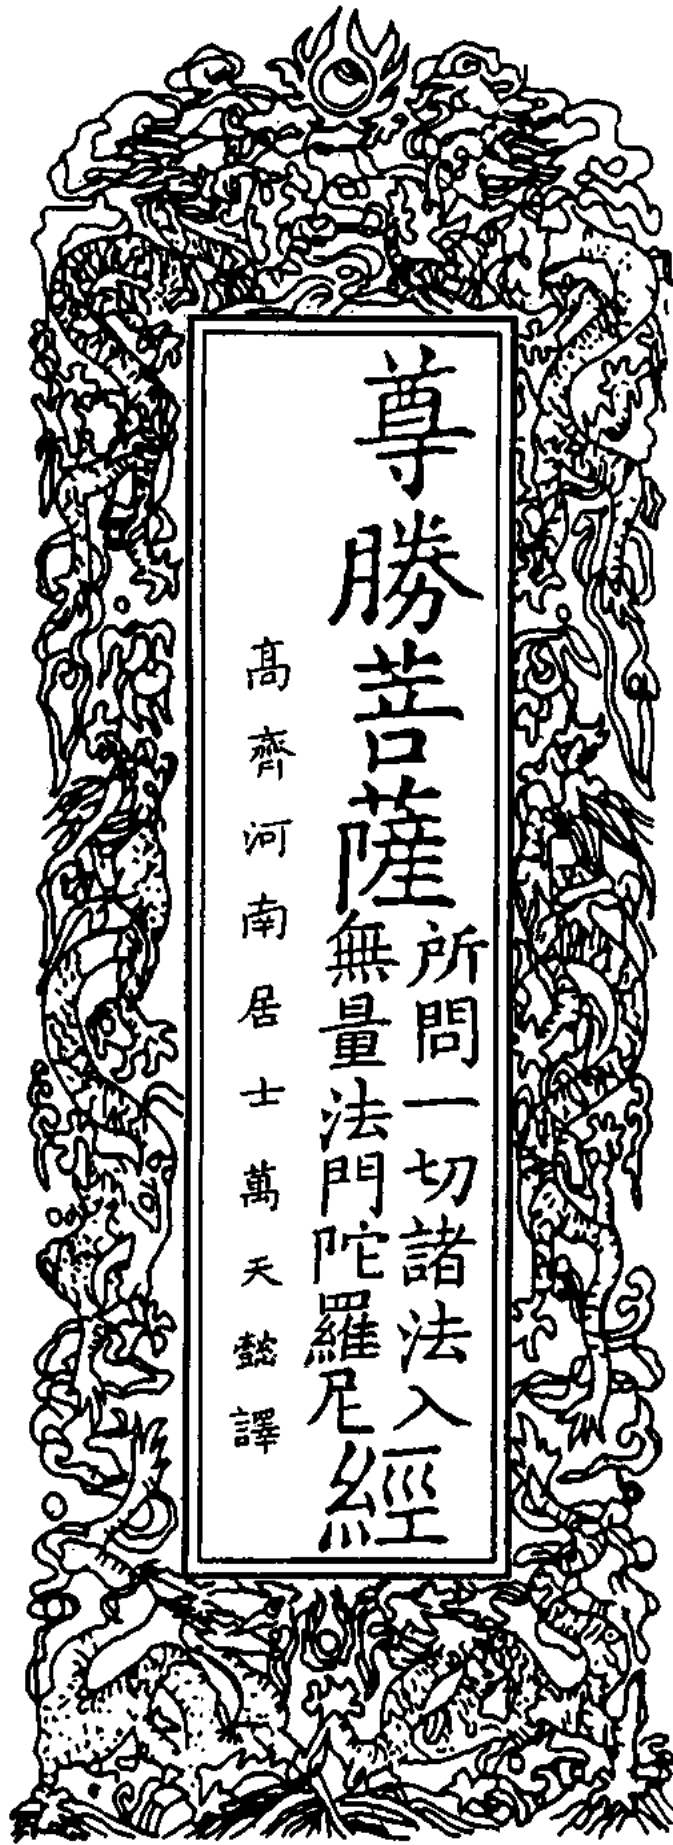 尊勝菩薩
所問一切諸法入
無量法門陀羅尼
經
高齊河南居士萬天懿譯